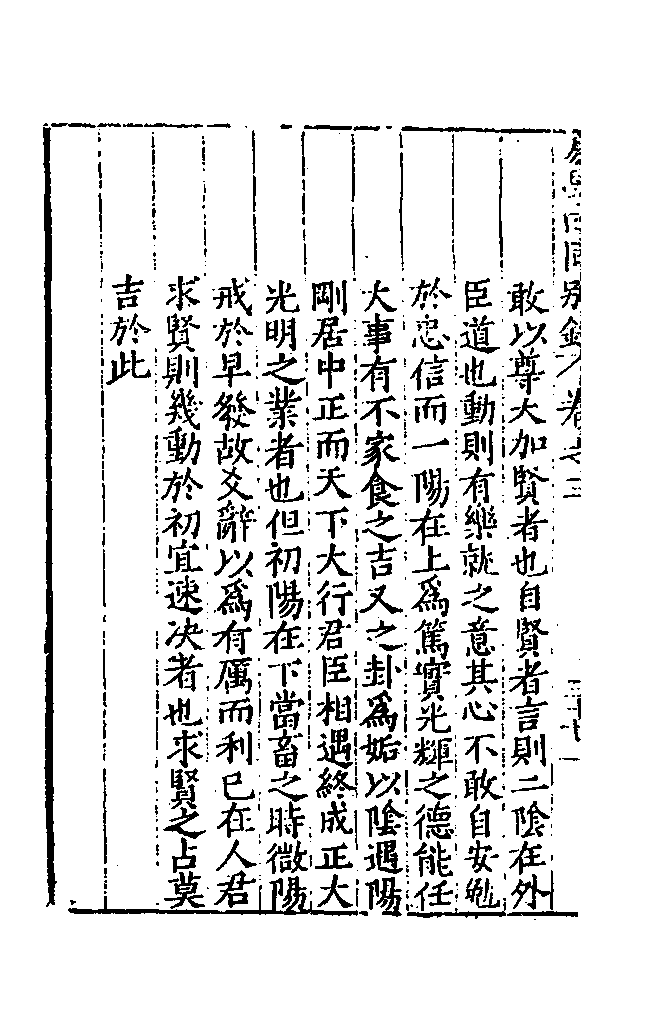 敢以尊大加賢者也自賢者言則二陰在外
臣道也動則有樂就之意其心不敢自安勉
於忠信而一陽在上爲篤實光輝之德能任
大事有不家食之吉又之卦爲姤以陰遇陽
剛居中正而天下大行君臣相遇終成正大
光明之業者也但初陽在下當畜之時微陽
戒於早發故爻辭以爲有厲而利已在人君
求賢則幾動於初宜速决者也求賢之占莫
吉於此